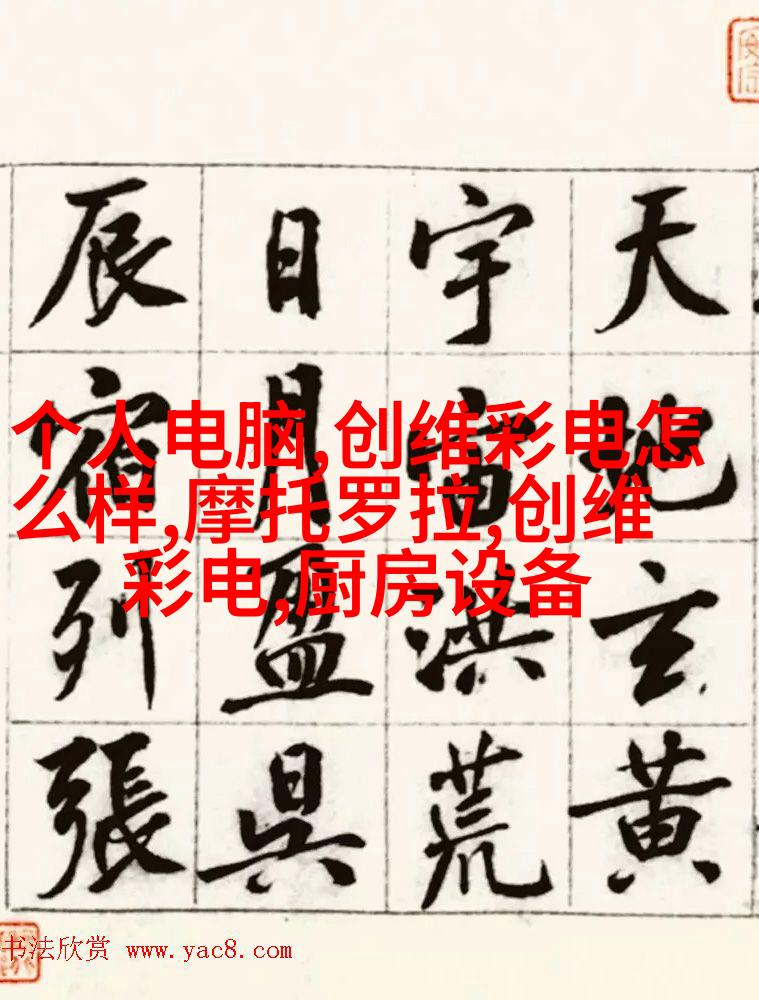 天地玄黄
宇宙洪荒
日月盈昃
辰宿列張
个人电脑,创维彩电怎
么样,摩托罗拉,创维
彩电,厨房设备
书法欣赏 www.yac8.com